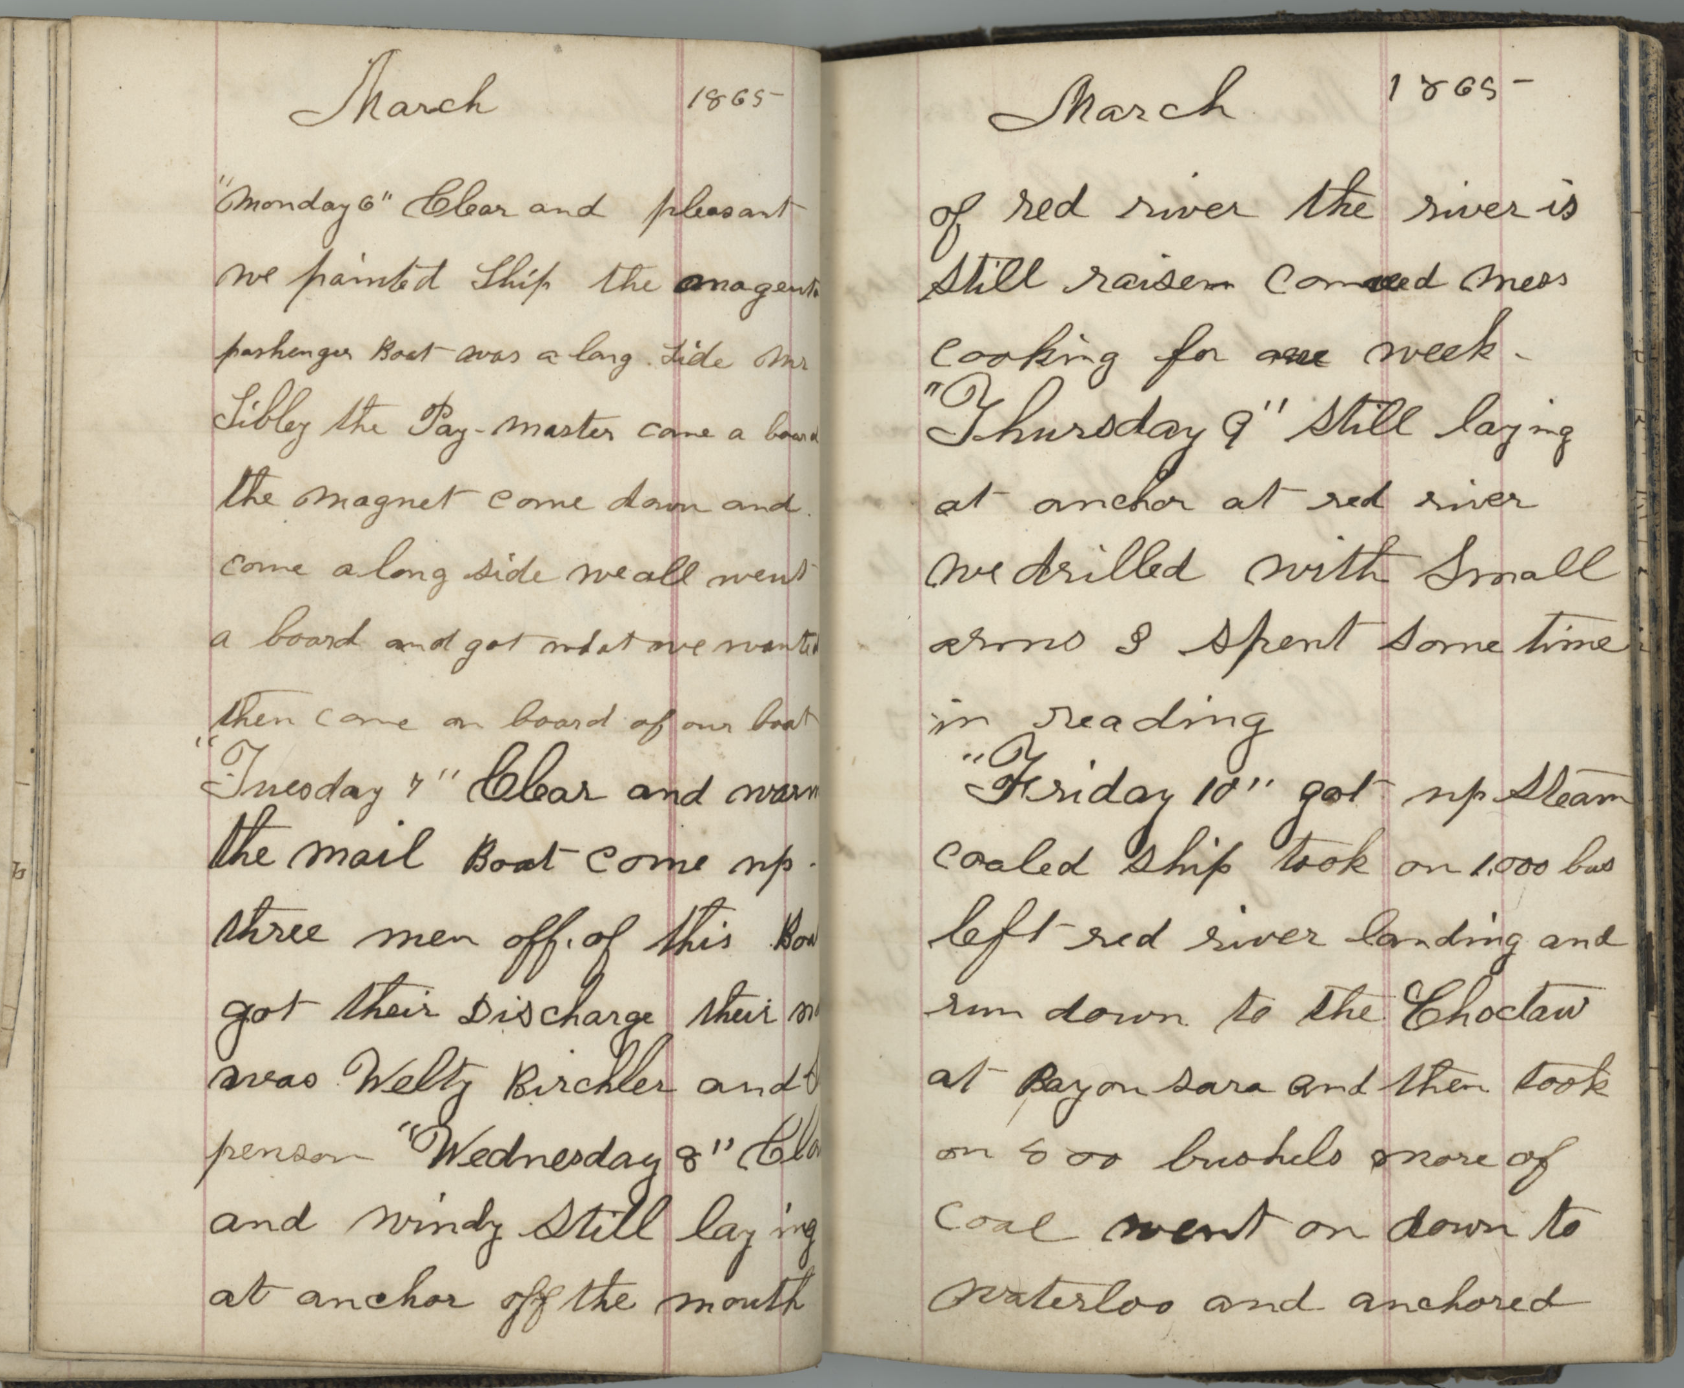 March 1865
"Monday 6" Clear and pleasant
we painted Ship the magenta
pashenger Boat was a long side Mr
Sibley the Pay-master come a board
the magnet come down and
come a long side we all went
a board and got what we wanted
then come on board of our boat
"Tuesday 7" Clear and warm
the mail Boat come up.
three men off of this Boa
got their Discharge their na
was Welty Birchler and
penson "Wednesday 8" Clo
and windy still laying
at anchor off the mouth
March 1865
of red river the river is
still raisen comenced mess
cooking for one week.
"Thursday 9" still laying
at anchor at red river
we drilled with Small
arms I spent some time
in reading
"Friday 10" got up steam
coaled ship took on 1.000 bus
left red river landing and
run down to the Choctaw
at Bayou sara and then took
on 500 bushels more of
coal went on down to
waterloo and anchored